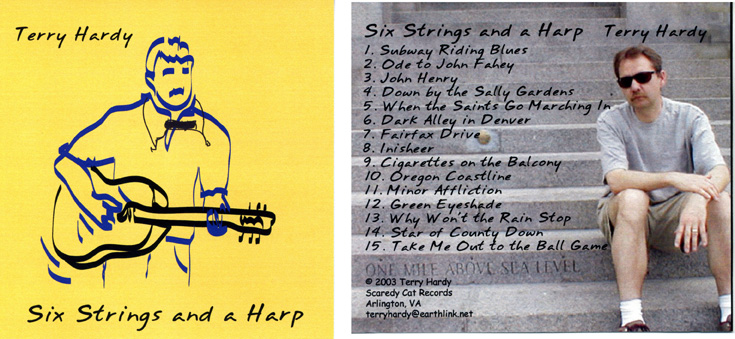 Terry Hardy
Six Strings and a Harp
Six Strings and a Harp Terry Hardy
1. Subway Riding Blues
2. Ode to John Fahey
3. John Henry
4. Down by the Sally Gardens
5. When the Saints Go Marching In
6. Dark Alley in Denver
7. Fairfax Drive
8. Inisheer
9. Cigarettes on the Balcony
10. Oregon Coastline
11. Minor Affliction
12. Green Eyeshade
13. Why Won't the Rain Stop
14. Star of County Down
15. Take Me Out to the Ball Game
ONE MILE ABOVE SEA LEVEL
© 2003 Terry Hardy
Scaredy Cat Records
Arlington, VA
terryhardy@earthlink.net